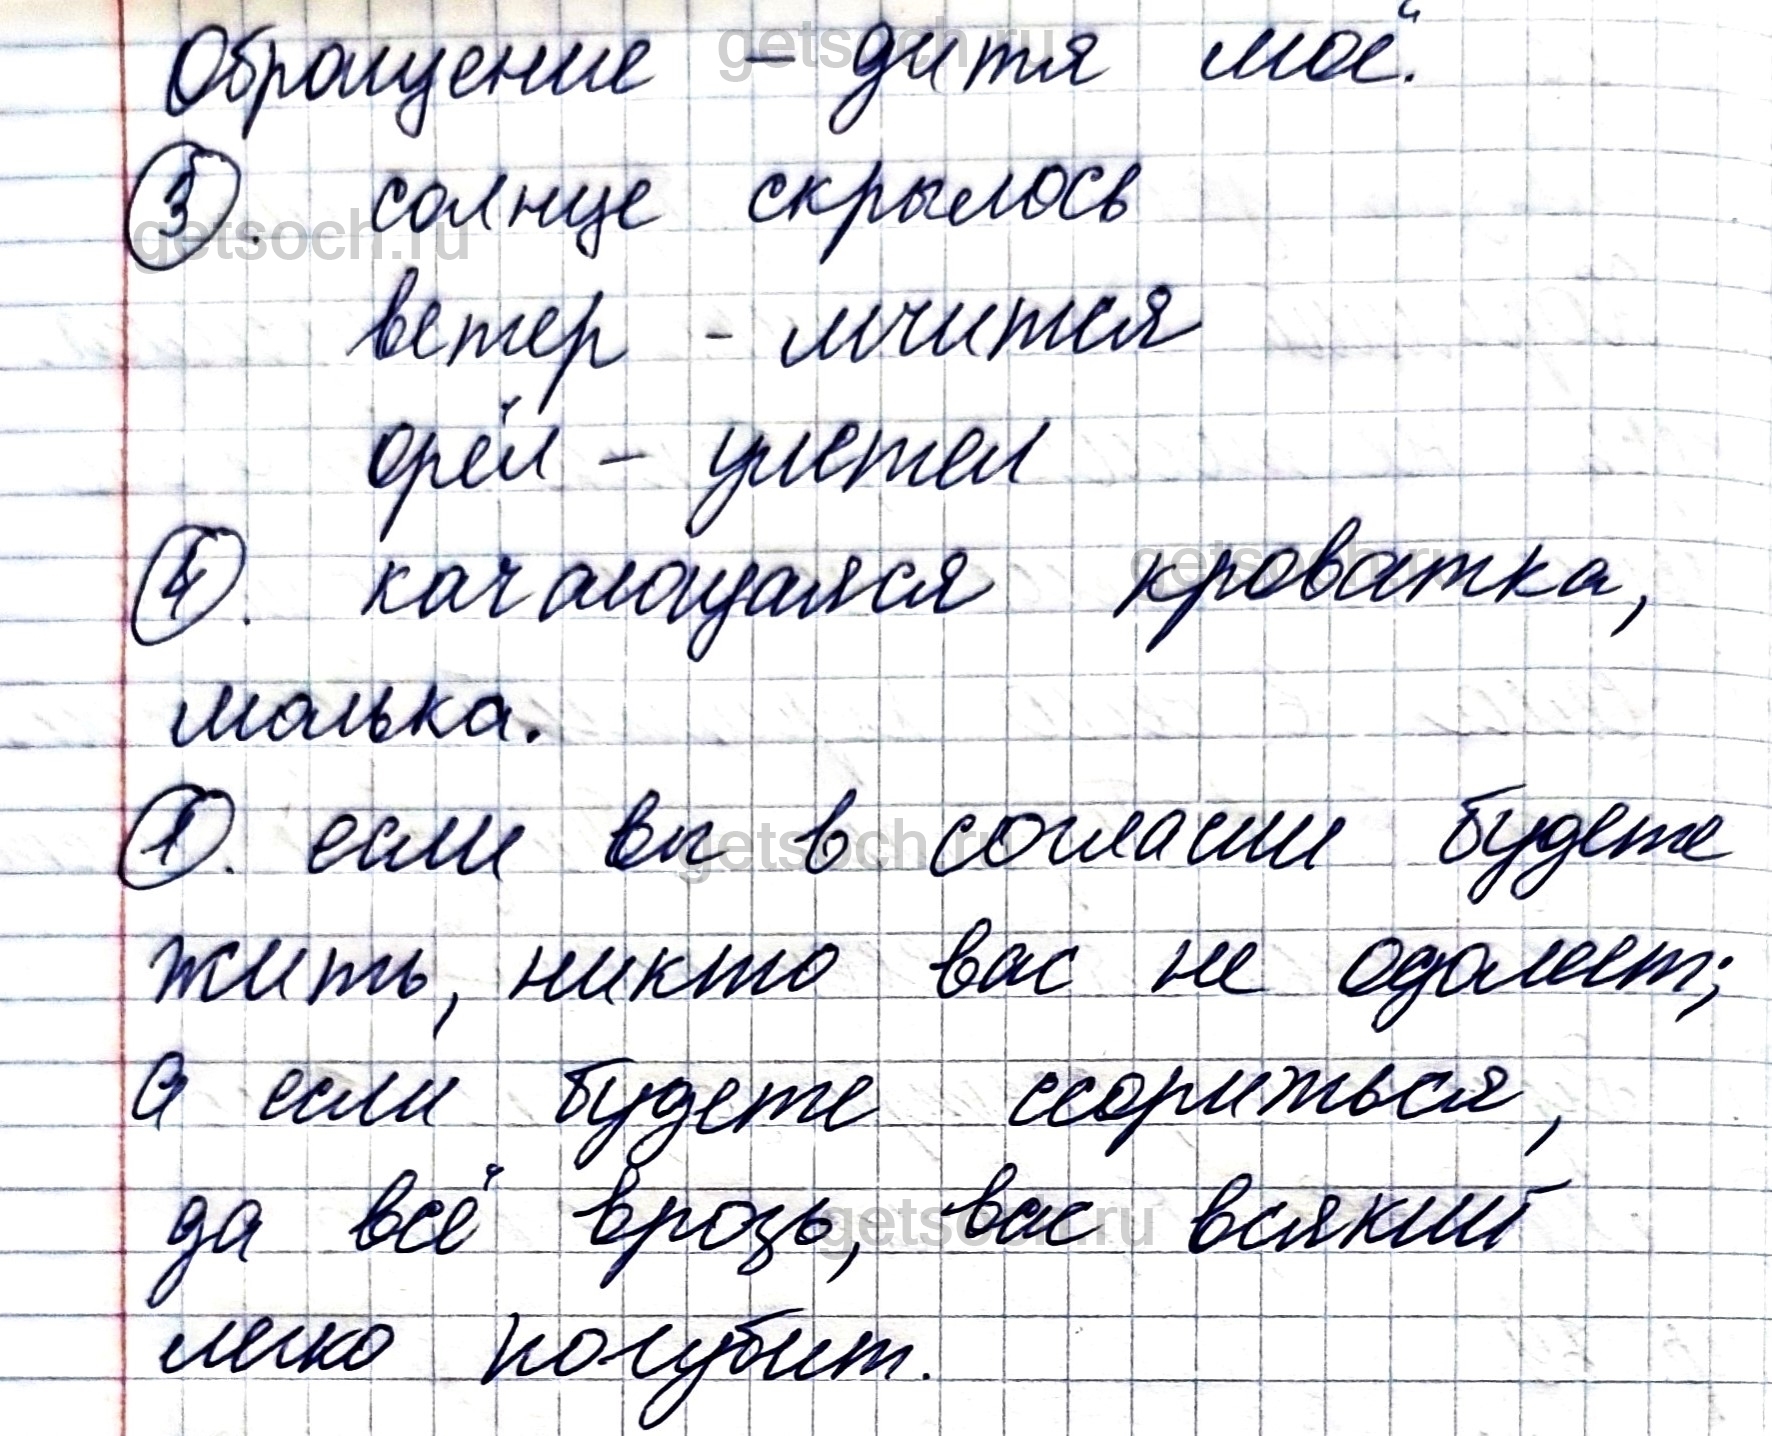 Обращение – дитя моё.
3. солнце скрылось
ветер - мчится
орёл – улетел
4. качающаяся кроватка,
малька.
1. если вы в согласии будете
жить, никто вас не одолеет;
а если будете ссориться,
да всё врозь, вас всякий
легко погубит.
getsoch.ru
getsoch.ru
getsoch.ru
getsoch.ru
getsoch.ru